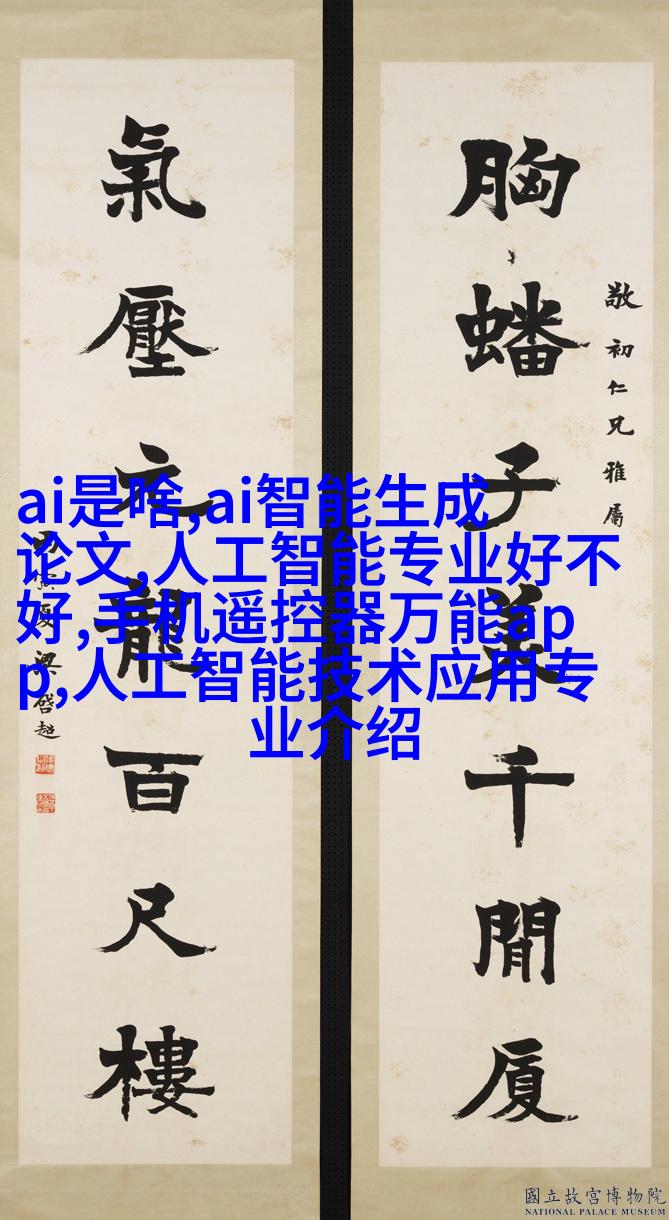 胸蟠子美千閒廈
敬初仁兄雅屬
氣壓元龍百尺樓
寅夏梁啓超
ai是啥,ai智能生成
论文,人工智能专业好不
好,手机遥控器万能ap
p,人工智能技术应用专
业介绍
國立故宮博物院
NATIONAL PALACE MUSEUM